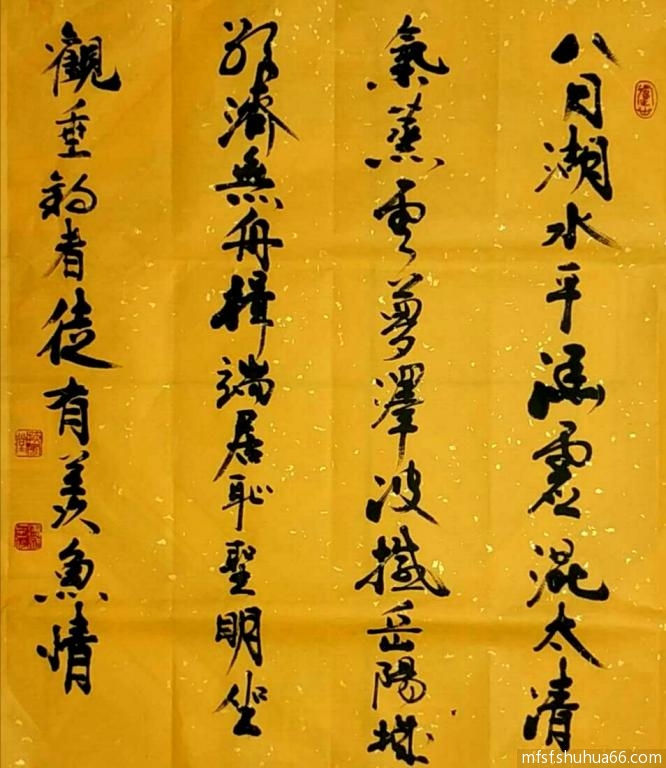 八月湖水平涵虛混太清
氣蒸雲夢澤波撼岳陽城
欲濟無舟楫端居恥聖明坐
觀垂釣者徒有羨魚情
mfsfshuhua66.com